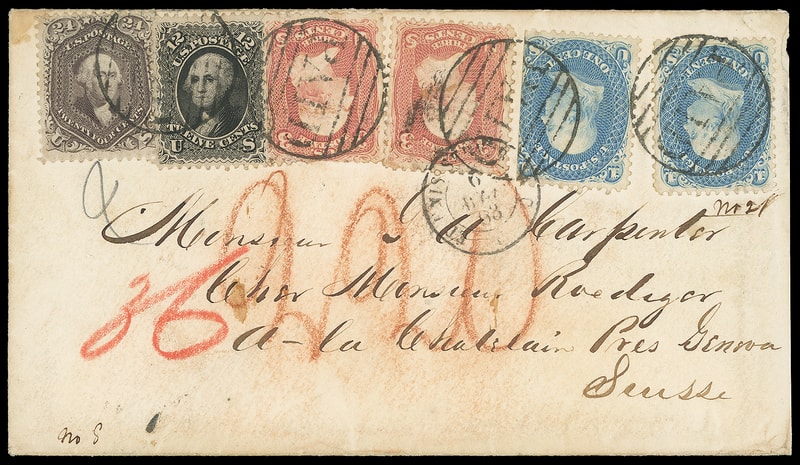 24 24
U.S. POSTAGE
TWENTY FOUR CENTS
12 12
U.S. POSTAGE
TWELVE CENTS
U S
THREE CENTS
3
THREE CENTS
3
ONE CENT
U.S. POSTAGE
ONE CENT
U.S. POSTAGE
PAID
No 21
Monsieur J A Carpenter
36
Cher Monsieur Roediger
A-la Chatelain Pres Geneva
Suisse
No 8